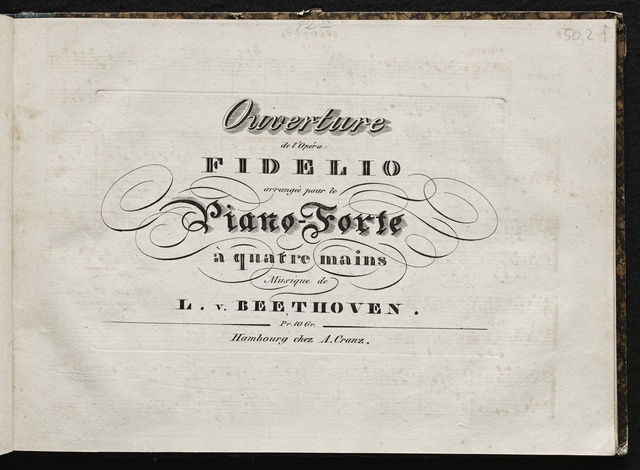 50.2 f
Ouverture
de l'Opéra:
FIDELIO
arrangée pour le
Piano-Forte
à quatre mains
Musique de
L. v. BEETHOVEN.
Pr. 10 Gr.
Hambourg chez A. Cranz.